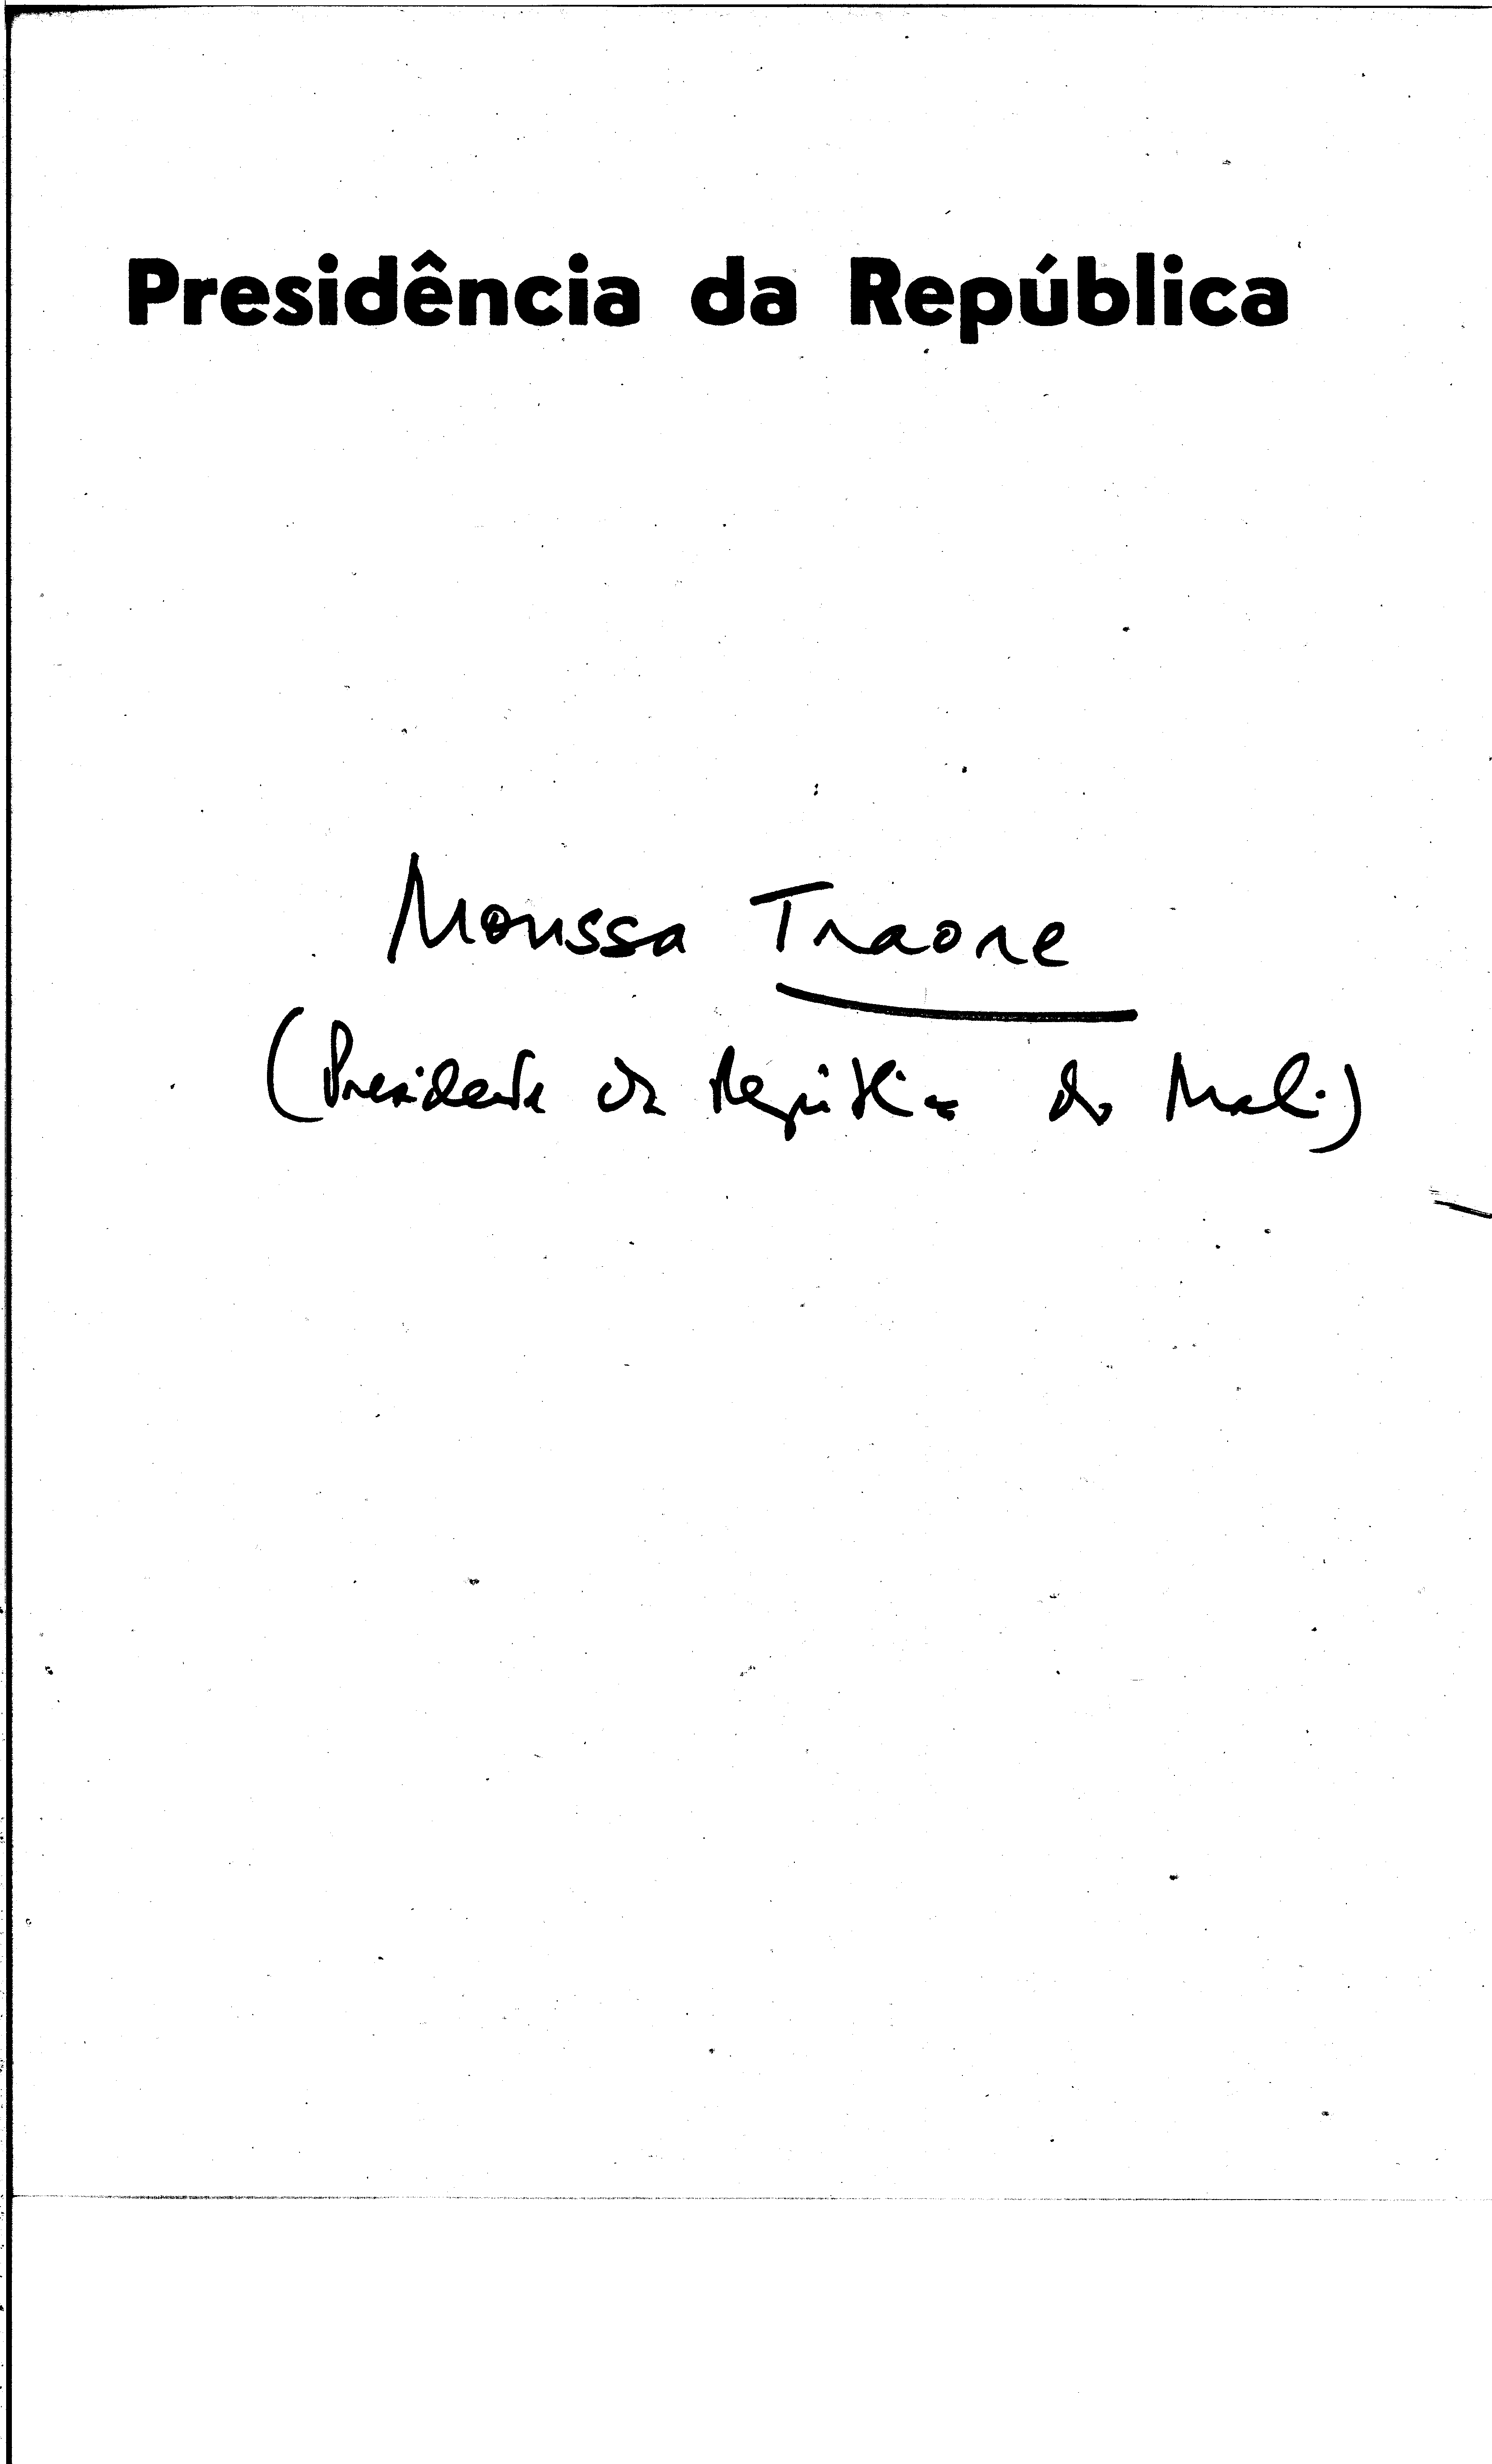 Presidência da República
Moussa Traore
(Presidente da República do Mali)